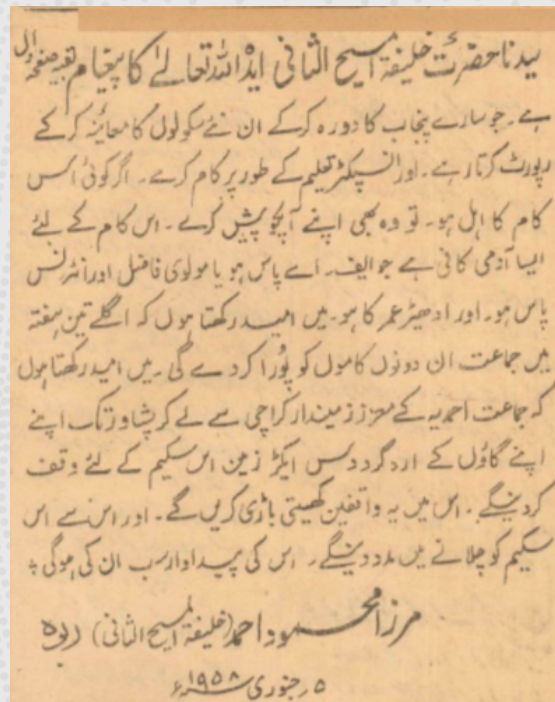 سیدنا حضرت خلیفۃ المسیح الثانی ایدہ اللہ تعالےٰ کا پیغام بقیہ صفحہ اول
ہے۔ جو سارے پنجاب کا دورہ کرکے ان نئے سکولوں کا معائنہ کرکے
رپورٹ کرتا رہے۔ اور انسپکٹر تعلیم کے طور پر کام کرے۔ اگر کوئی اس
کام کا اہل ہو۔ تو وہ بھی اپنے آپکو پیش کرے۔ اس کام کے لئے
ایسا آدمی کافی ہے جو ایف۔ اے پاس ہو یا مولوی فاضل اور انٹرنس
پاس ہو۔ اور ادھیڑ عمر کا ہو۔ میں امید رکھتا ہوں کہ اگلے تین ہفتہ
میں جماعت ان دونوں کاموں کو پُورا کردے گی۔ میں امید رکھتا ہوں
کہ جماعت احمدیہ کے معزز زمیندار کراچی سے لے کر پشاور تک اپنے
اپنے گاؤں کے اردگرد دس ایکڑ زمین اس سکیم کے لئے وقف
کردینگے۔ اس میں یہ واقفین کھیتی باڑی کریں گے۔ اور اس سے اس
سکیم کو چلانے میں مدد دینگے۔ اس کی پیداوار سب ان کی ہوگی ؛
مرزا محمود احمد (خلیفۃ المسیح الثانی) ربوہ
۵ جنوری ۱۹۵۸ء